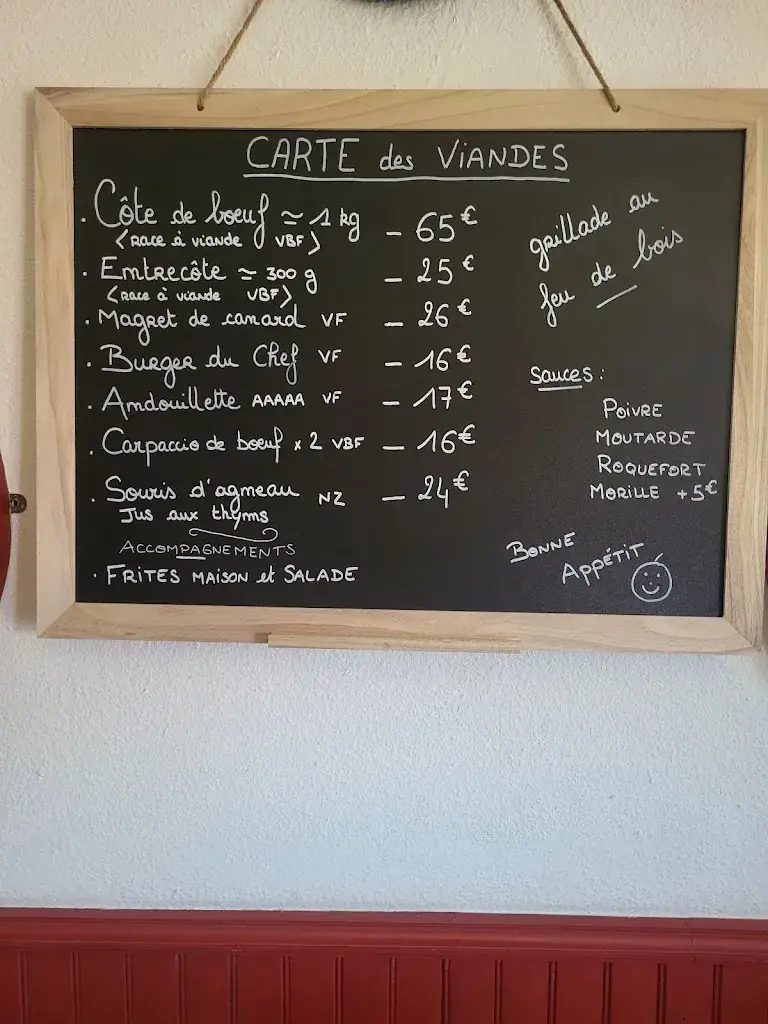 CARTE des VIANDES
. Côte de boeuf ≃ 1 kg - 65€
<Race à viande VBF>
. Entrecôte ≃ 300 g - 25€
<Race à viande VBF>
. Magret de canard VF - 26€
. Burger du Chef VF - 16€
. Andouillette AAAAA VF - 17€
. Carpaccio de boeuf x 2 VBF - 16€
. Souris d'agneau NZ - 24€
Jus aux thyms
ACCOMPAGNEMENTS
. FRITES MAISON et SALADE
grillade au
feu de bois
Sauces :
POIVRE
MOUTARDE
ROQUEFORT
MORILLE +5€
BONNE
APPÉTIT